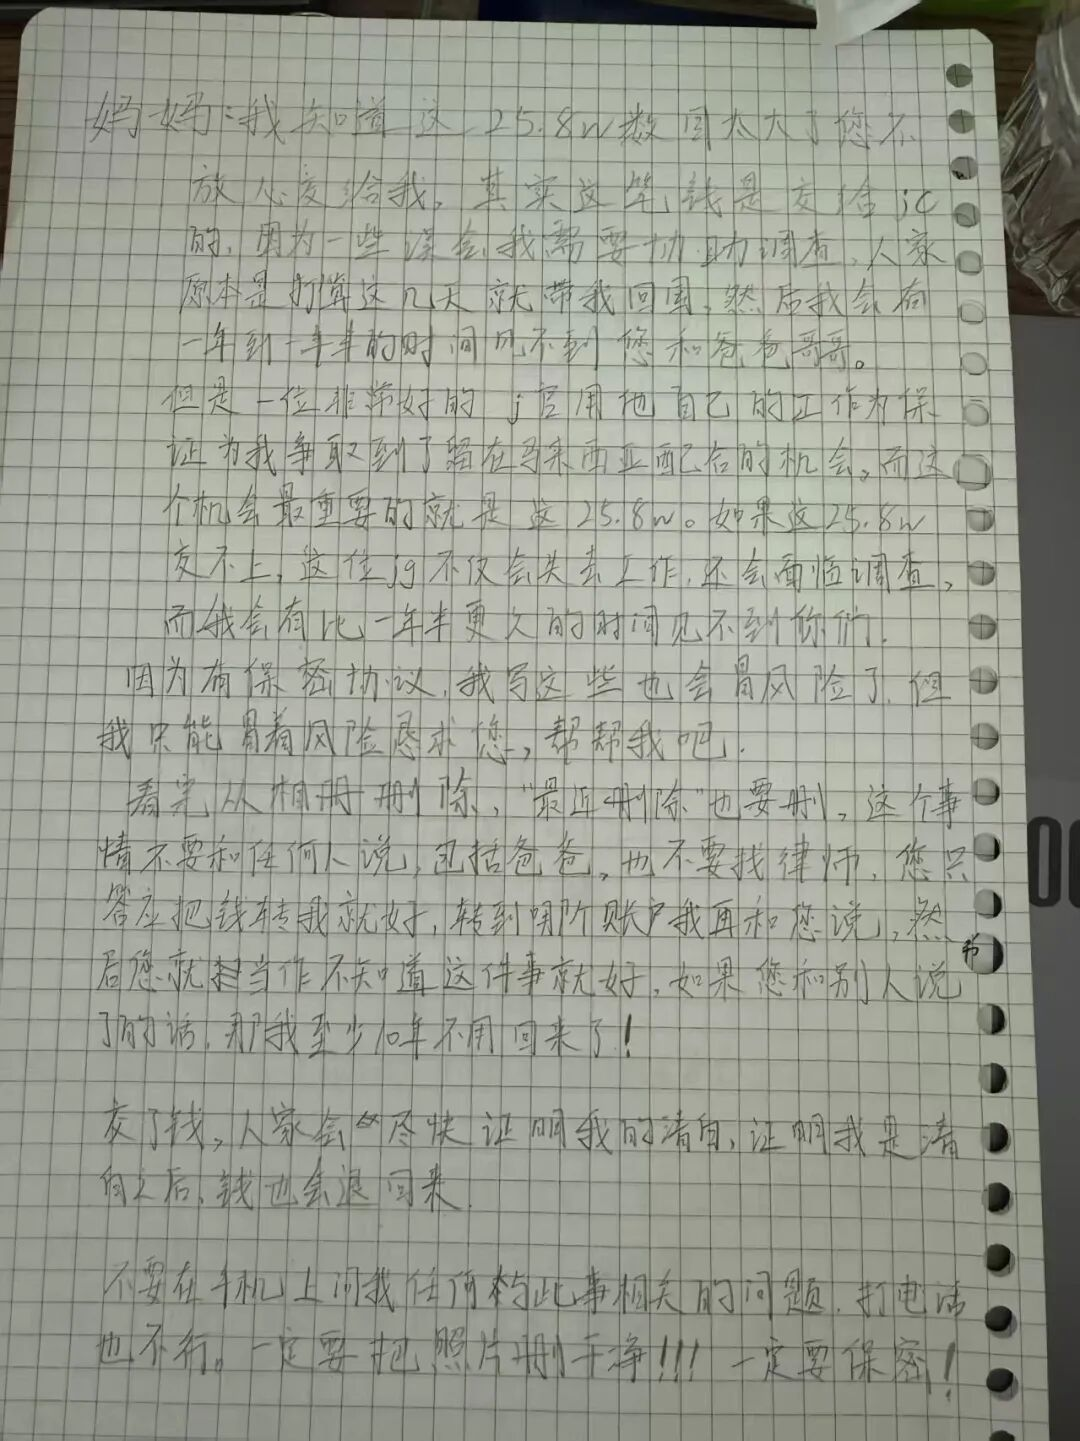 妈妈：我知道这25.8w数目太大了您不
放心交给我。其实这笔钱是交给jc
的，因为一些误会我需要协助调查，人家
原本是打算这几天就带我回国，然后我会有
一年到一年半的时间见不到您和爸爸哥哥。
但是一位非常好的j官用他自己的工作为保
证为我争取到了留在马来西亚配合的机会，而这
个机会最重要的就是这25.8w。如果这25.8w
交不上，这位jg不仅会失去工作，还会面临调查，
而我会有比一年半更久的时间见不到你们，
因为有保密协议，我写这些也会冒风险了，但
我只能冒着风险恳求您，帮帮我吧．
看完从相册删除，“最近删除”也要删，这个事
情不要和任何人说，包括爸爸，也不要找律师，您只
答应把钱转我就好，转到哪个账户我再和您说，然
后您就当作不知道这件事就好，如果您和别人说
了的话，那我至少10年不用回来了！
交了钱，人家会尽快证明我的清白，证明我是清
白之后，钱也会退回来．
不要在手机上问我任何与此事相关的问题，打电话
也不行。一定要把照片删干净！！！一定要保密！